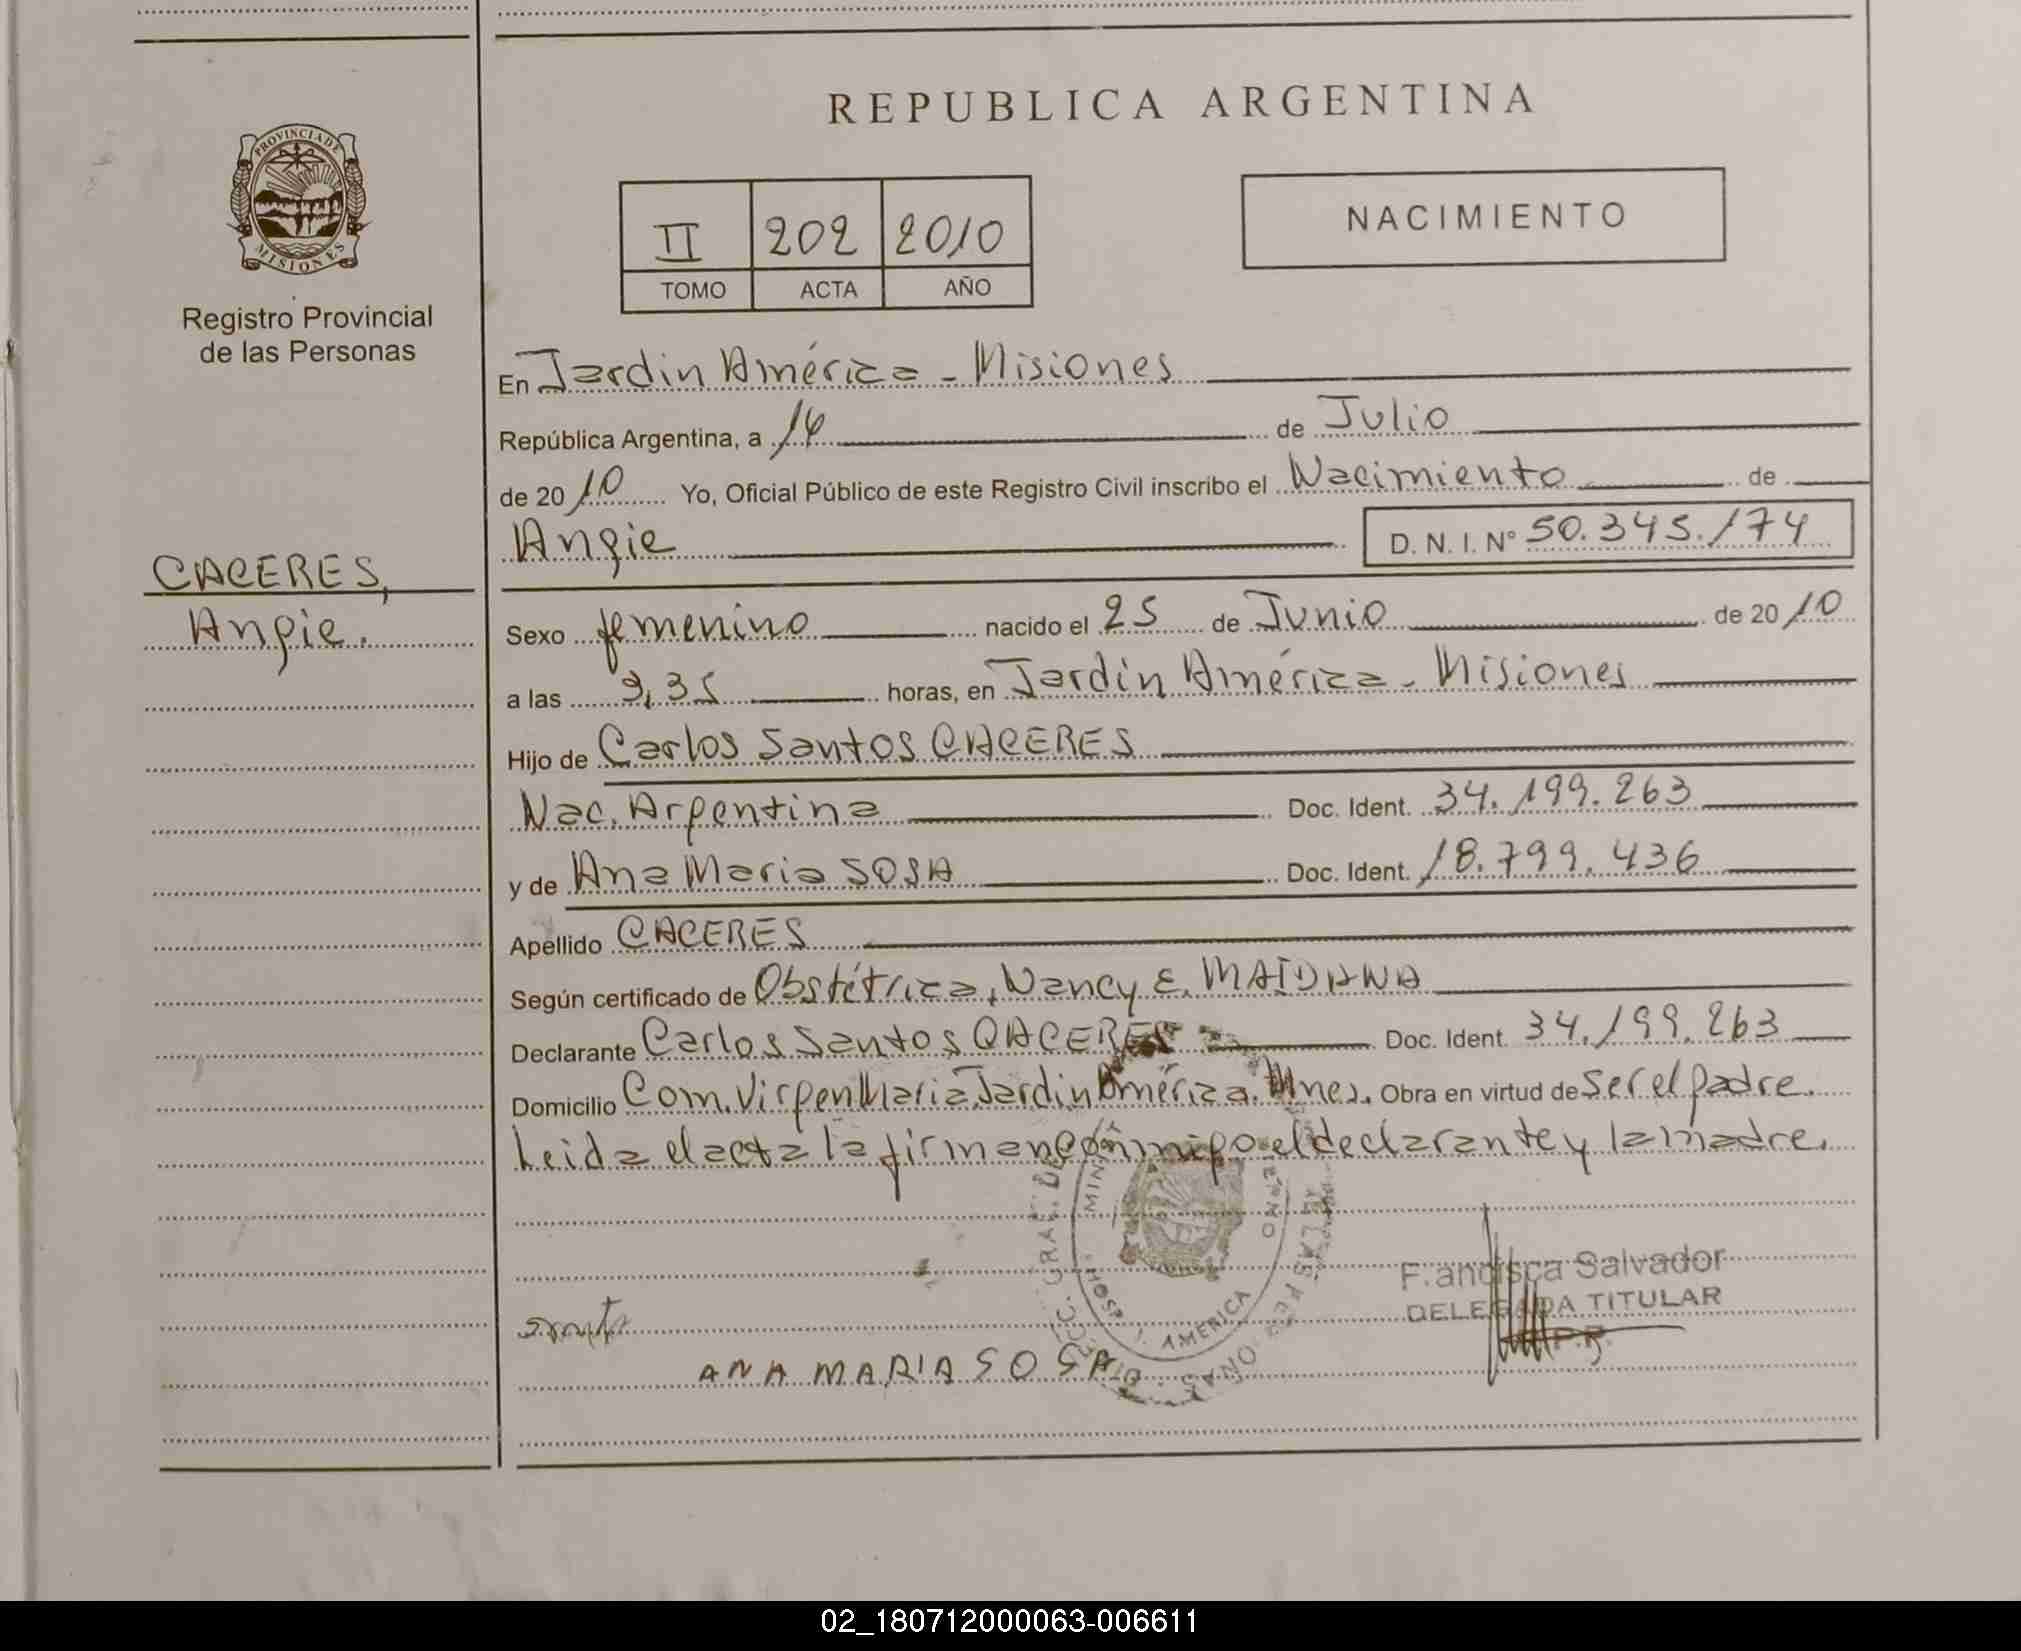 REPUBLICA ARGENTINA
PROVINCIA DE
MISIONES
Registro Provincial
de las Personas
II 202 2010
TOMO ACTA AÑO
NACIMIENTO
En Jardin América - Misiones
República Argentina, a 14 de Julio
de 2010 Yo, Oficial Público de este Registro Civil inscribo el Nacimiento de
Angie D. N. I. N° 50.345.174
CACERES,
Angie.
Sexo femenino nacido el 25 de Junio de 2010
a las 9,35 horas, en Jardin América - Misiones
Hijo de Carlos Santos CACERES
Nac. Argentina Doc. Ident. 34.199.263
y de Ana Maria SOSA Doc. Ident. 18.799.436
Apellido CACERES
Según certificado de Obstétrica, Nancy E. MAIDANA
Declarante Carlos Santos CACERES Doc. Ident. 34.199.263
Domicilio Com. Virgen Maria, Jardin América. Mnes. Obra en virtud de ser el padre.
Leida el acta la firman conmigo el declarante y la madre.
AMERICA
Francisca Salvador
DELEGADA TITULAR
ANA MARIA SOSA
02_180712000063-006611